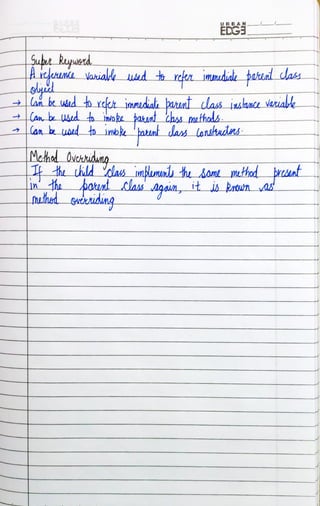 URBAN
EDGE
Super Keyword
A reference variable used to refer immediate parent class
object
→ Can be used to refer immediate parent class instance variable
→ Can be used to invoke parent class methods.
→ Can be used to invoke parent class constructors.
Method Overriding
If the child class implements the same method present
in the parent class again, it is known as
method overriding